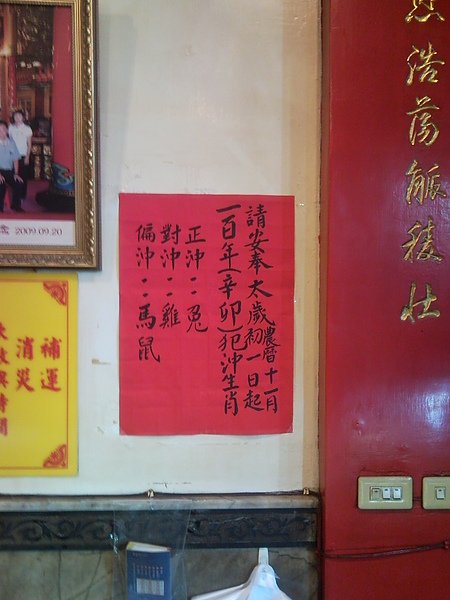 浩蕩觚稜壯
請安奉太歲農曆十一月
初一日起
一百年(辛卯)犯沖生肖
正沖：兔
對沖：雞
偏沖：馬鼠
2009.09.20
補運
消災